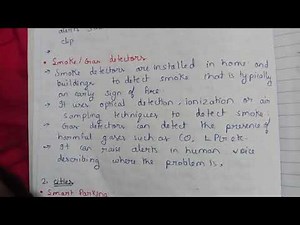 clip
• Smoke/Gas detectors
→ Smoke detectors are installed in home and
buildings to detect smoke that is typically
an early sign of fire.
→ It uses optical detection, ionization or air
sampling techniques to detect smoke.
→ Gas detectors can detect the presence of
harmful gases such as CO, LPG etc.
→ It can raise alerts in human voice
describing where the problem is.
2. cities
• Smart Parking